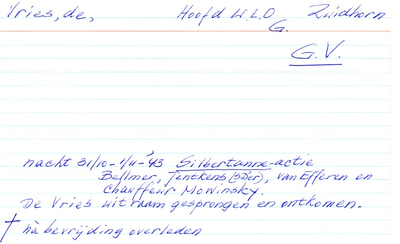 Vries, de, Hoofd W.L.O Zuidhorn
G.
G.V.
nacht 31/10-1/11-'43 Silbertanne-actie
Bellmer, Jentkens (SDer), van Efferen en
Chauffeur Mowinsky.
De Vries uit raam gesprongen en ontkomen.
† nà bevrijding overleden